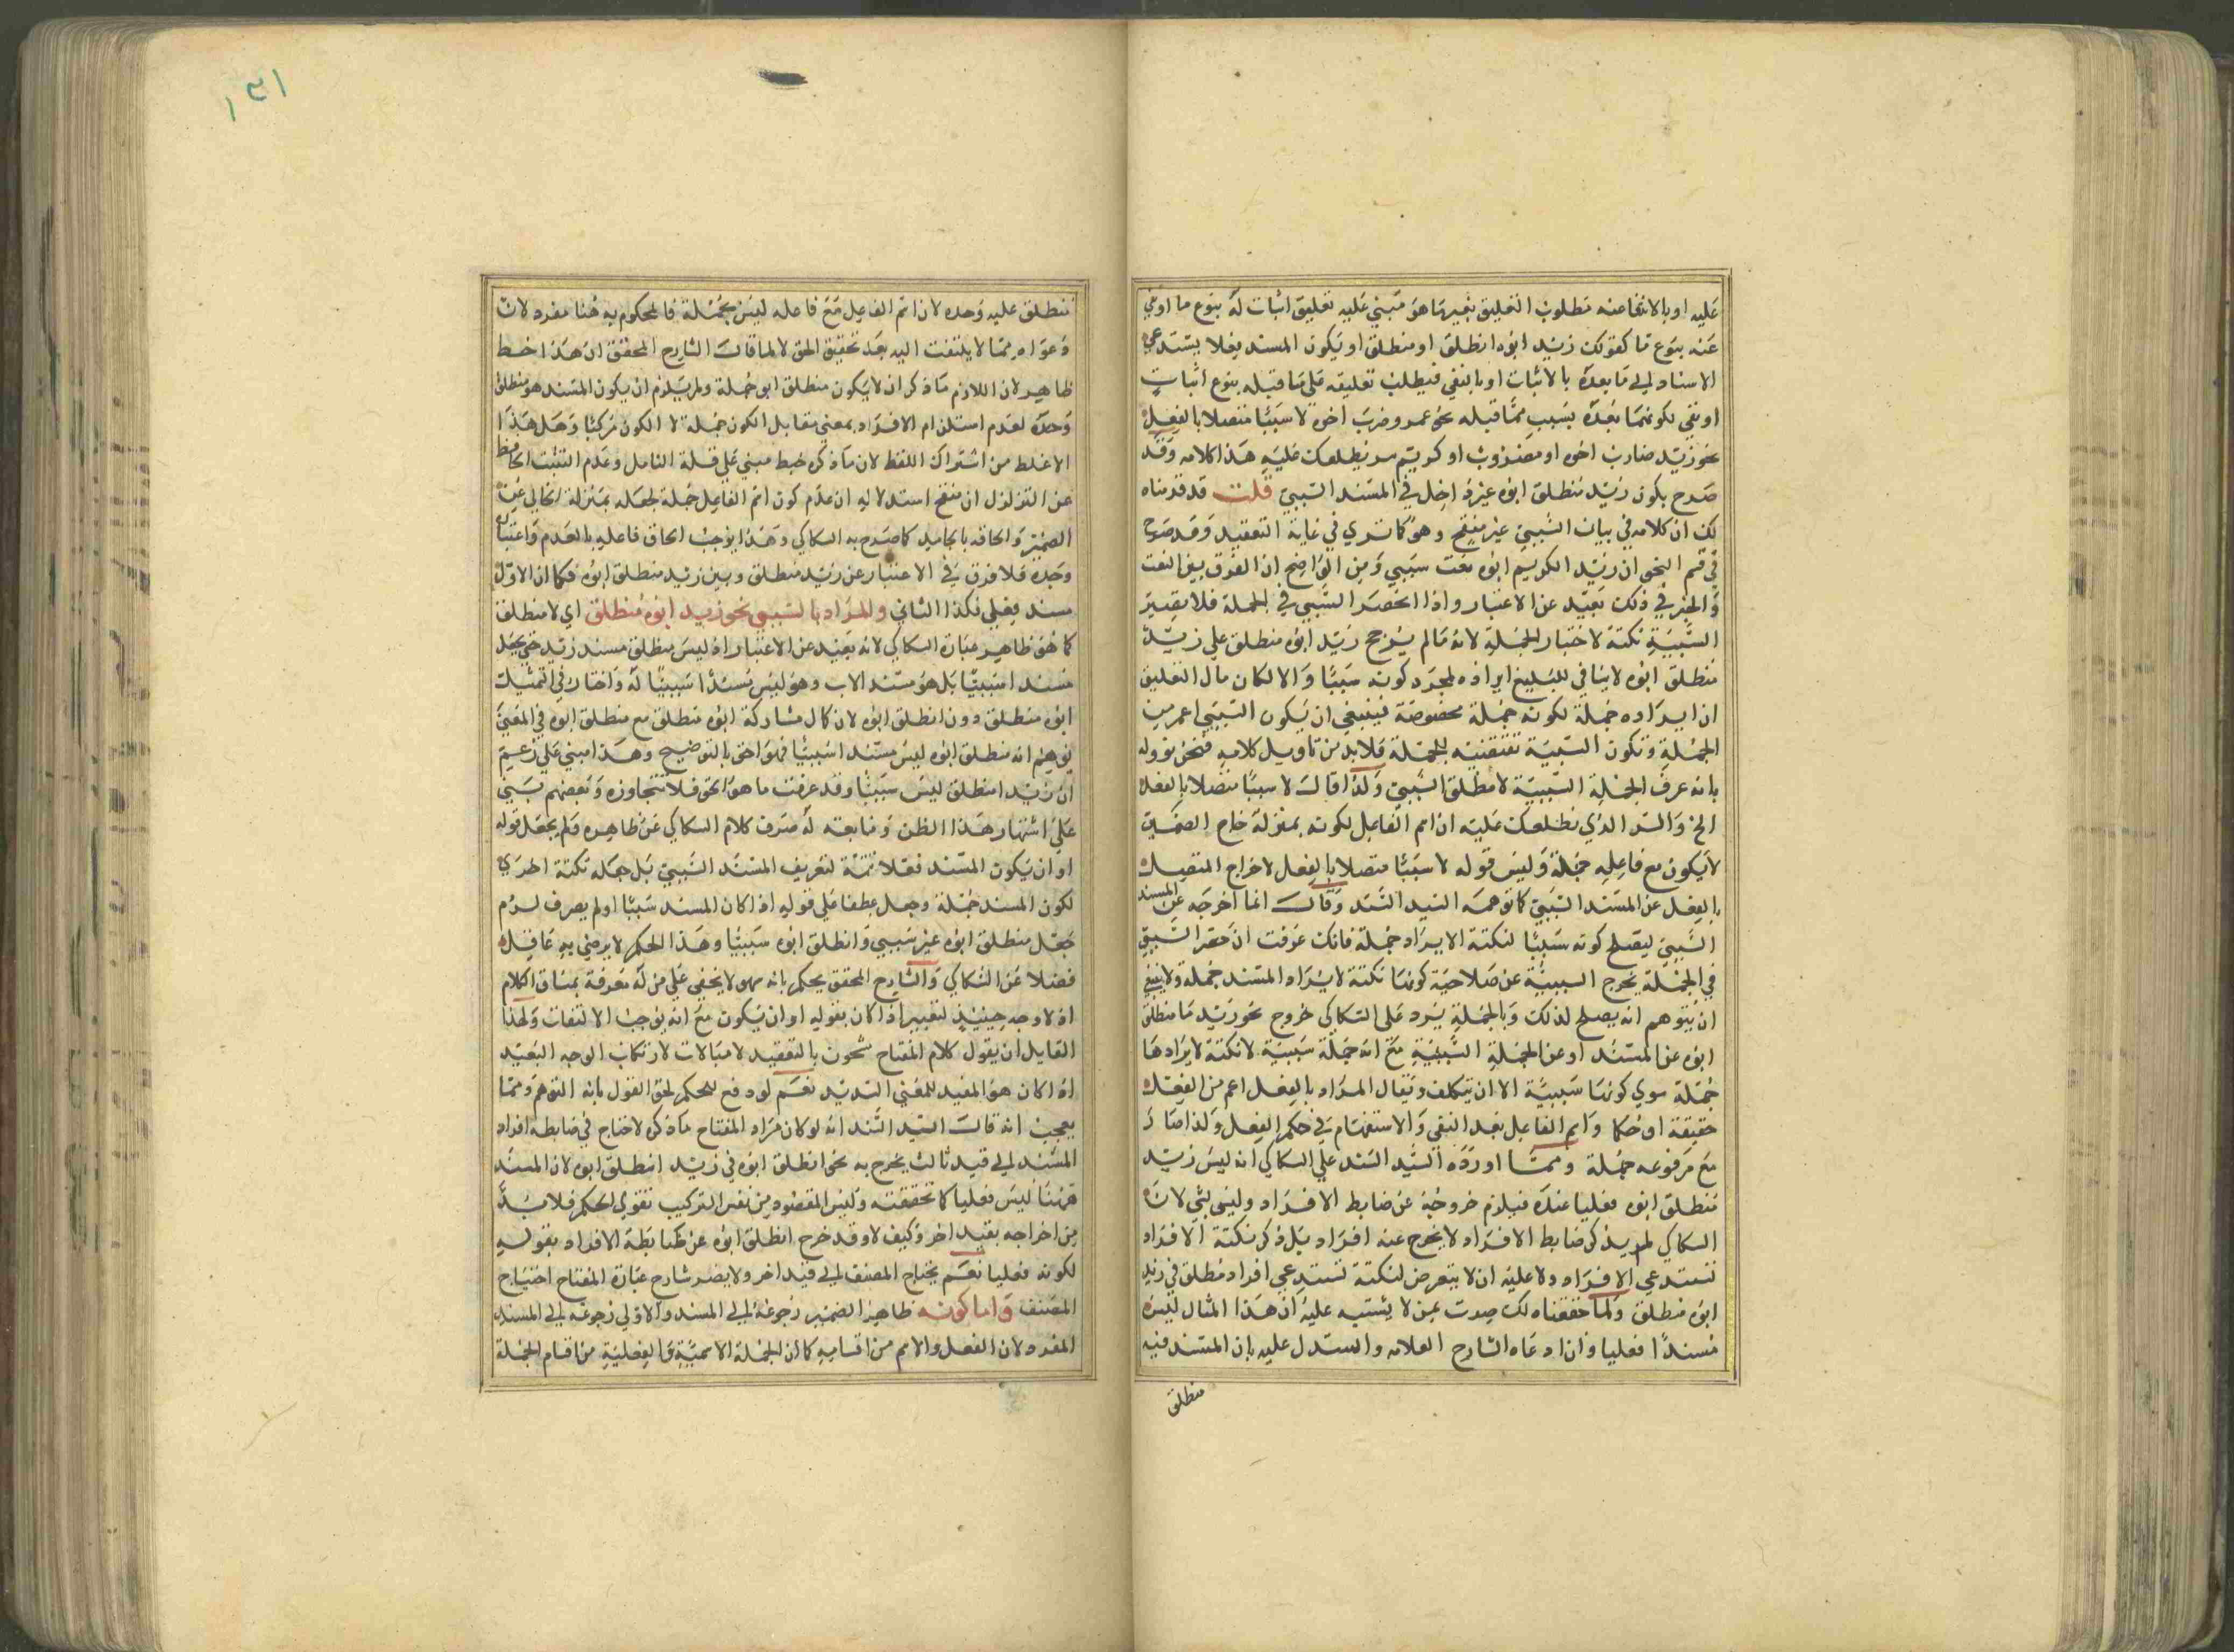 عليه او بالانتفاعنه مطلوب التعليق بغيرما هو مبني عليه تعليق اثبات له بنوع ما او نفي
عنه بنوع ما كقولك زيد ابوه انطلق او منطلق او يكون المسند فعلا يستدعي
الاسناد الى ما بعده بالاثبات او بالنفي فيطلب تعليقه على ما قبله بنوع اثبات
او نفي لكون ما بعده بسبب مما قبله نحو عمرو ضرب اخوه لا سببيا متصلا بالفعل
نحو زيد ضارب اخوه او مضروب او كريم سر نطلعك عليه هذا كلامه وقد
صرح بكون زيد منطلق ابوه غير داخل في المسند السببي قلت قد قدمناه
لك ان كلامه في بيان السببي غير منقح وهو كما ترى في غاية التعقيد وقد صرح
في قسم النحو ان زيد الكريم ابوه نعت سببي ومن الواضح ان الفرق بين النعت
والخبر في ذلك بعيد عن الاعتبار واذا انحصر السببي في الجملة فلا تصير
السببية نكتة لاختيار الجملة لانه مالم يرجح زيد ابوه منطلق على زيد
منطلق ابوه لا يتاتى للبليغ ايراده لمجرد كونه سببيا والا لكان مال التعليق
ان ايراده جملة لكونه جملة مخصوصة فينبغي ان يكون السببي اعم من
الجملة وتكون السببية تقتضيه للجملة فلابد من تاويل كلامه فنحن نؤوله
بانه عرف الجملة السببية لا مطلق السببي ولذا قال لا سببيا متصلا بالفعل
الخ والسر الذي نطلعك عليه ان اسم الفاعل لكونه بمنزلة خام الضمير
لا يكون مع فاعله جملة وليس قوله لا سببيا متصلا بالفعل لاخراج المتصل
بالفعل عن المسند السببي كما توهمه السيد السند وقال انما اخرجه عن المسند
السببي ليصلح كونه سببيا لنكتة الايراد جملة فانك عرفت ان حصر السببي
في الجملة يخرج السببية عن صلاحية كونها نكتة لايراد المسند جملة ولا ينبغي
ان يتوهم انه يصلح لذلك وبالجملة يرد على السكاكي خروج نحو زيد ما منطلق
ابوه عن المسند او عن الجملة السببية مع انه جملة سببية لا نكتة لايرادها
جملة سوى كونها سببية الا ان يتكلف ويقال المراد بالفعل اعم من الفعل
حقيقة او حكما واسم الفاعل بعد النفي والاستفهام في حكم الفعل ولذا صار
مع مرفوعه جملة ومما اورده السيد السند على السكاكي انه ليس زيد
منطلق ابوه فعليا عنده فيلزم خروجه عن ضابط الافراد وليس بشي لان
السكاكي لم يذكر ضابط الافراد لا يخرج عنه افراد بل ذكر نكتة الافراد
تستدعي الافراد ولا عليه ان لا يتعرض لنكتة تستدعي افراد منطلق في زيد
ابوه منطلق ولما حققناه لك صرت بمن لا يشتبه عليه ان هذا المثال ليس
مسندا فعليا وان ادعاه الشارح العلامه واستدل عليه بان المسند فيه
منطلق
١٣١
منطلق عليه وحده لان اسم الفاعل مع فاعله ليس بجملة فالمحكوم به هنا مفرد لان
دعواه مما لا يلتفت اليه بعد تحقيق الحق لا لما قال الشارح المحقق ان هذا خبط
ظاهر لان اللازم ما ذكر ان لا يكون منطلق ابوه جملة ولم يلزم ان يكون المسند هو منطلق
وحده لعدم استلزام الافراد بمعنى مقابل الكون جملة لا الكون مركبا وهل هذا
الا غلط من اشتراك اللفظ لان ما ذكره خبط مبني على قلة التامل وعدم التثبت الحافظ
عن التزلزل ان منقح استدلاله ان عدم كون اسم الفاعل جملة لجعله بمنزلة الخالي عن
الضمير والحاقه بالجامد كما صرح به السكاكي وهذا يوجب الحاق فاعله بالعدم واعتبار
وحده فلا فرق في الاعتبار عن زيد منطلق وبين زيد منطلق ابوه فكما ان الاول
مسند فعلي فكذا الثاني والمراد بالسببي نحو زيد ابوه منطلق اي لا منطلق
كما هو ظاهر عبارة السكاكي لانه بعيد عن الاعتبار اذ ليس منطلق مسند زيد حتى يجعل
مسندا سببيا بل هو مسند الاب وهو ليس مسندا سببيا له واختار في التمثيل
ابوه منطلق دون انطلق ابوه لان كمال مشاركة ابوه منطلق مع منطلق ابوه في المعنى
يوهم انه منطلق ابوه ليس مسندا سببيا فهو احق بالتوضيح وهذا مبني على زعم
ان زيدا منطلق ليس سببيا وقد عرفت ما هو الحق فلا نتجاوزه وبعضهم بنى
على اشتهار هذا الظن ومتابعته له صرف كلام السكاكي عن ظاهره فلم يجعل قوله
او ان يكون المسند فعلا تتمة لتعريف المسند السببي بل جعله نكتة اخرى
لكون المسند جملة وجعل عطفا على قوله اذا كان المسند سببيا اولم يصرف لزم
جعل منطلق ابوه غير سببي وانطلق ابوه سببيا وهذا الحكم لا يرضى به عاقل
فضلا عن السكاكي والشارح المحقق يحكم بانه سهو لا يخفى على من له معرفة بمساق الكلام
اذ لا وجه حينئذ لتغيير اذا كان بقوله او ان يكون مع انه يوجب الالتفات ولهذا
القايل ان يقول كلام المفتاح مشحون بالتعقيد لا مبالات لارتكاب الوجه البعيد
اذا كان هو المفيد للمعنى السديد نعم لو دفع للحكم لحق القول بانه التوهم ومما
يعجب انه قال السيد السند انه لو كان مراد المفتاح ما ذكره لاحتاج في ضابطه افراد
المسند الى قيد ثالث يخرج به نحو انطلق ابوه في زيد انطلق ابوه لان المسند
ههنا ليس فعليا كما تحققته وليس المقصود من نفس التركيب تقوي الحكم فلابد
من اخراجه بقيد اخر وكيف لا وقد خرج انطلق ابوه عن ضابطة الافراد بقوله
لكونه فعليا نعم يحتاج المصنف الى قيد اخر ولا يضر شارح عبارة المفتاح احتياج
المصنف واما كونه ظاهر الضمير رجوعه الى المسند والاولى رجوعه الى المسند
المفرد لان الفعل والاسم من اقسامه كما ان الجملة الاسمية والفعلية من اقسام الجملة